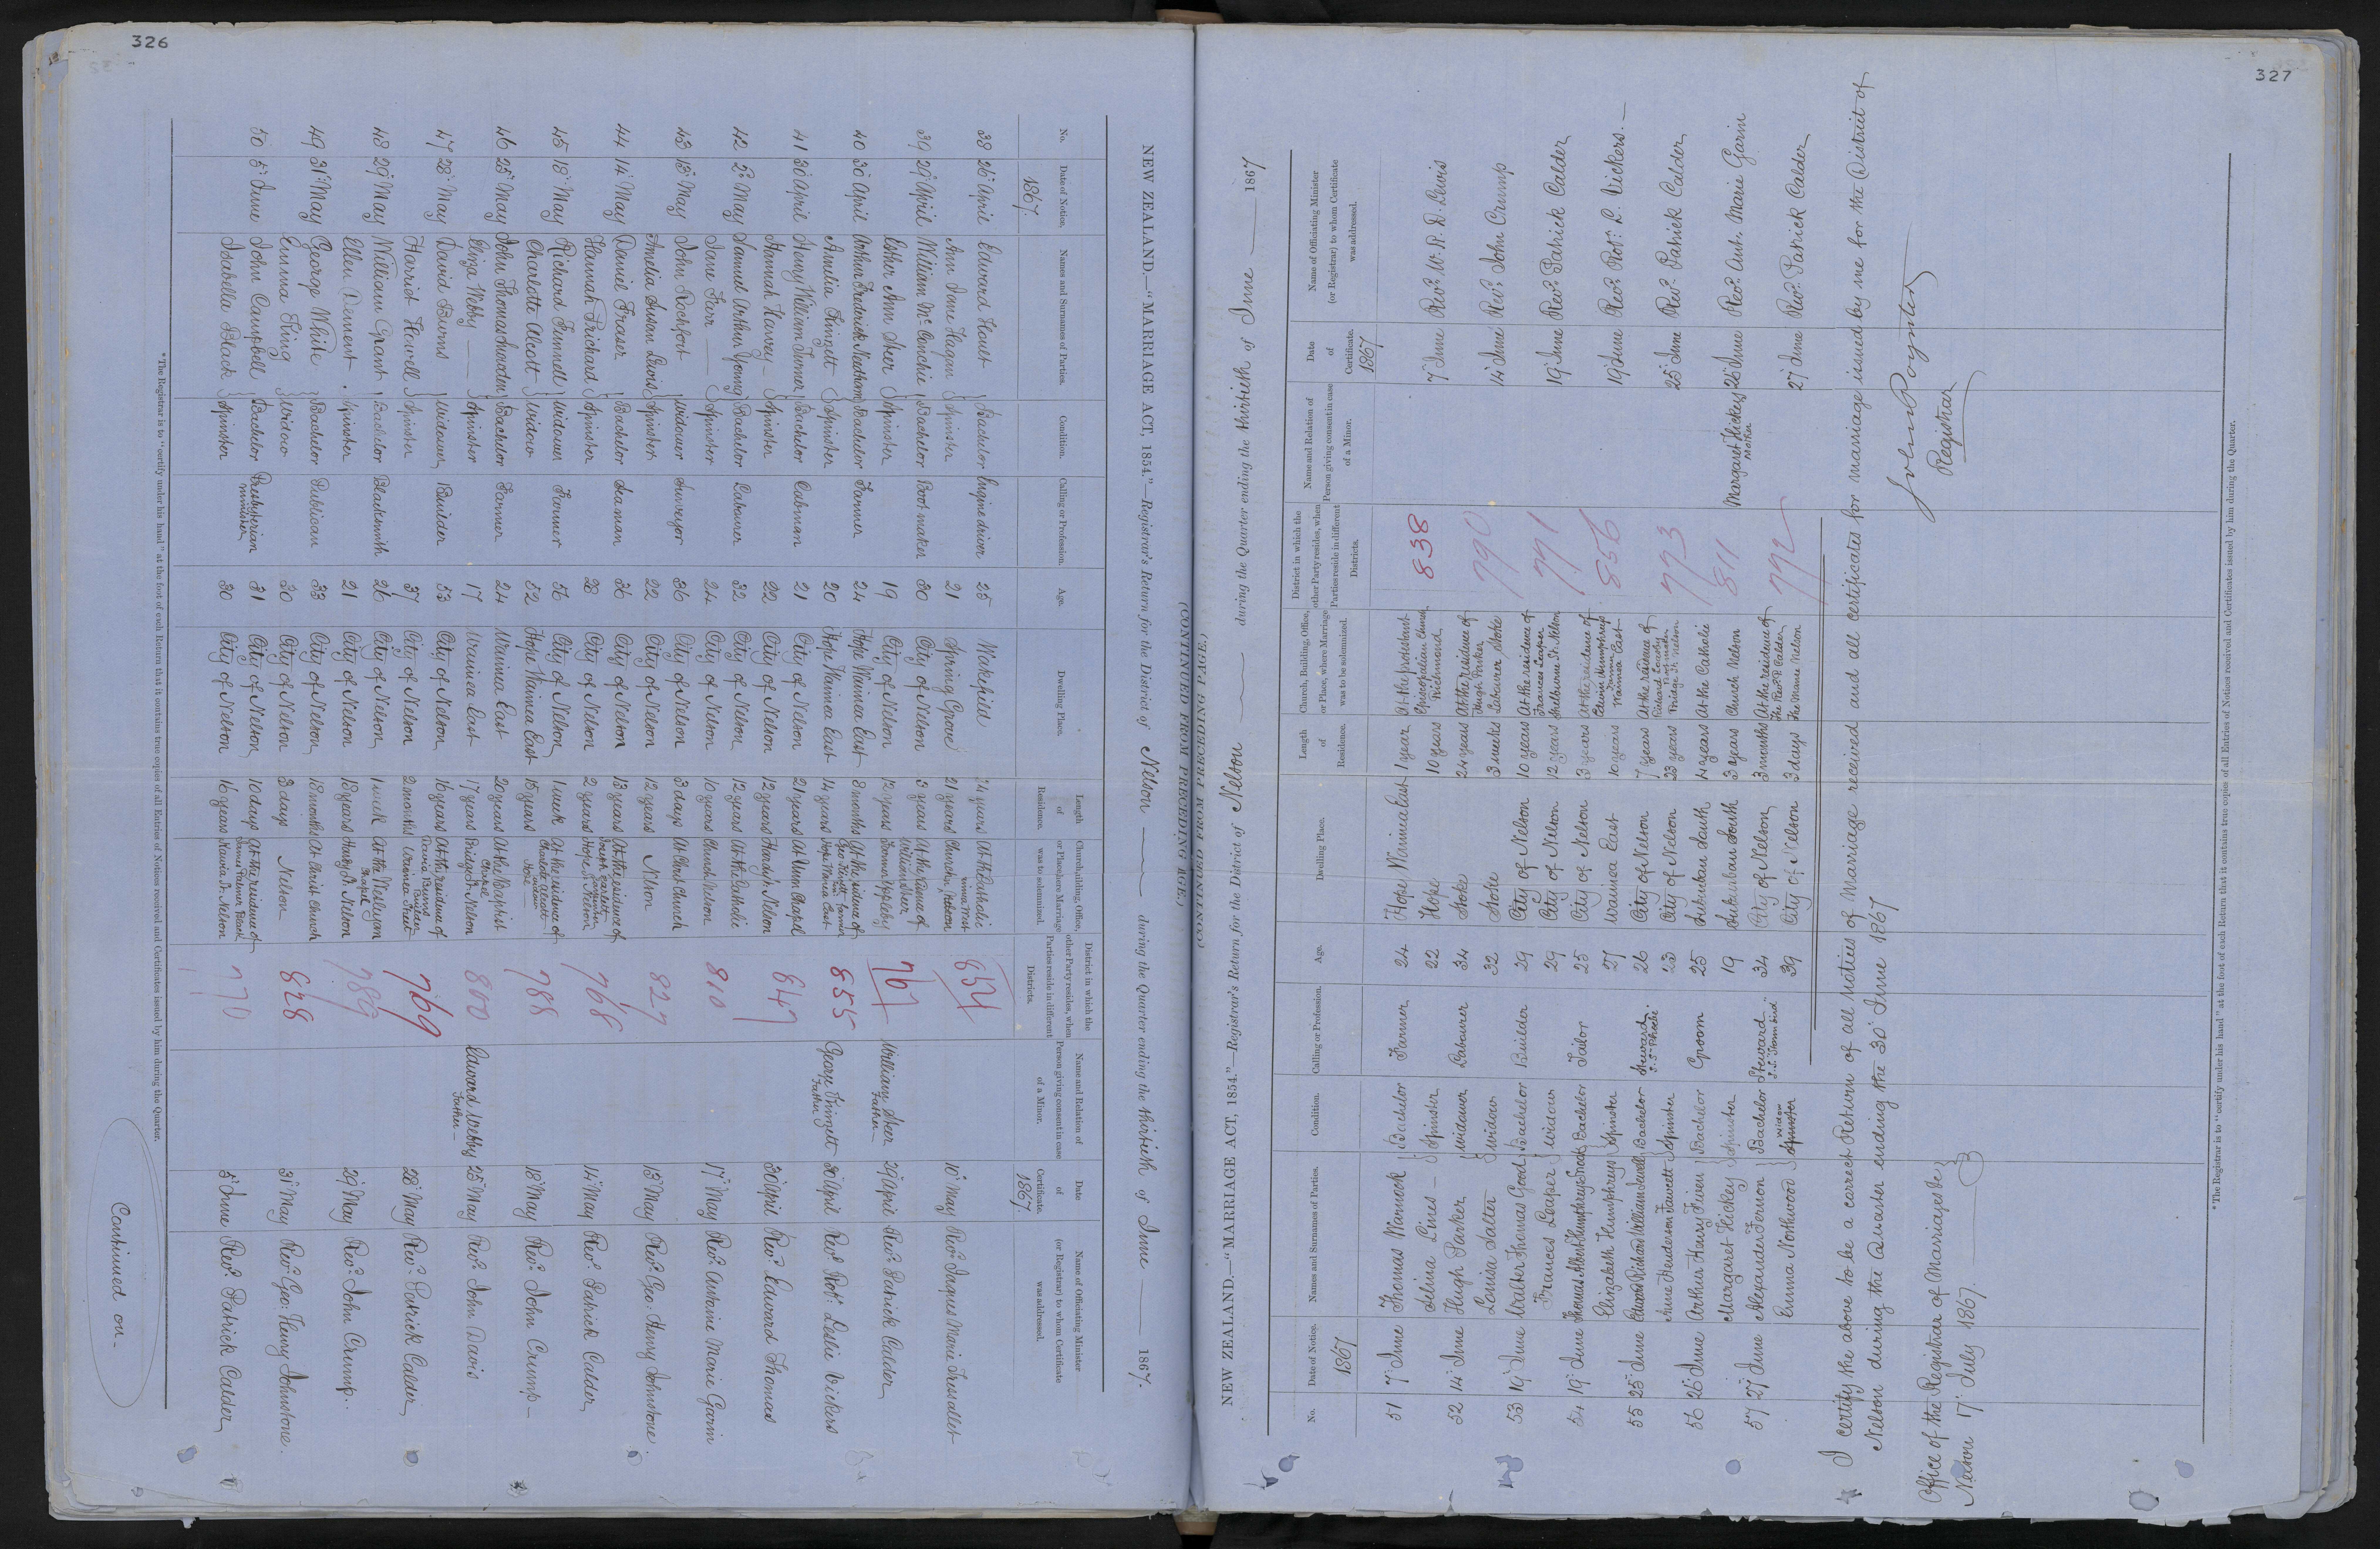 326
NEW ZEALAND.—"MARRIAGE ACT, 1854."—Registrar's Return for the District of Nelson during the Quarter ending the Thirtieth of June 1867.
(CONTINUED FROM PRECEDING PAGE.)
No. Date of Notice. Names and Surnames of Parties. Condition. Calling or Profession. Age. Dwelling Place. Length of Residence. Church, Building, Office, or Place where Marriage was to be solemnized. District in which the other Party resides, when Parties reside in different Districts. Name and Relation of Person giving consent in case of a Minor. Date of Certificate. Name of Officiating Minister (or Registrar) to whom Certificate was addressed.
1867 1867
38 26 April Edward Bachelor Engine driver 25 Wakefield 21 years At the Catholic 834 10 May Revd
Ann Jane Hagan Spinster 21 Spring Grove 21 years Church Nelson
39 29 April William McConchie Bachelor Boot maker 30 City of Nelson 3 years At the house of 767 William Father 29 April Revd Patrick Calder
Esther Ann Spinster 19 City of Nelson 12 years
40 30 April Arthur Frederick Bachelor Farmer 24 Hope Waimea East 8 months At the residence of 855 George Kinzett Father 30 April Revd Robt Leslie Vickers
Amelia Kinzett Spinster 20 Hope Waimea East 14 years Geo Kinzett farmer Hope Waimea East
41 30 April Henry William Turner Bachelor Cabman 21 City of Nelson 21 years 847 30 April Revd Edward Thomas
Hannah Harvey Spinster 22 City of Nelson 12 years Hardy St. Nelson
42 2 May Samuel Arthur Young Bachelor Labourer 32 City of Nelson 12 years At the Catholic 810 17 May Revd Antoine Marie Garin
Jane Farr Spinster 24 City of Nelson 10 years Church Nelson
43 13 May John Rochfort Widower Surveyor 36 City of Nelson 3 days At Christ Church 827 13 May Revd Geo: Henry Johnstone
Amelia Susan Lewis Spinster 22 City of Nelson 12 years Nelson
44 14 May Daniel Fraser Bachelor Seaman 36 City of Nelson 13 years At the residence of 768 14 May Revd Patrick Calder
Hannah Prichard Spinster 28 City of Nelson 2 years
45 18 May Richard Fennell Widower Farmer 56 City of Nelson 1 week At the residence of 788 18 May Revd John Crump
Charlotte Alcott Widow 52 Hope Waimea East 15 years Charlotte Alcott widow Hope
46 25 May John Thomas Bachelor Farmer 24 Waimea East 20 years At the Baptist 800 Edward Webby Father 25 May Revd John Davis
Eliza Webby Spinster 17 Waimea East 17 years Bridge St. Nelson
47 28 May David Burns Widower Builder 53 City of Nelson 16 years At the residence of 769 28 May Revd Patrick Calder
Harriet Howell Spinster 37 City of Nelson 2 months David Burns Builder Waimea Street
48 29 May William Grant Bachelor Blacksmith 26 City of Nelson 1 week At the Wesleyan Chapel 789 29 May Revd John Crump
Ellen Dement Spinster 21 City of Nelson 18 years Hardy St. Nelson
49 31 May George White Bachelor Publican 33 City of Nelson 18 months At Christ Church 828 31 May Revd Geo: Henry Johnstone
Emma King Widow 30 City of Nelson 3 days Nelson
50 5 June John Campbell Bachelor Presbyterian minister 31 City of Nelson 10 days At the residence of 770 5 June Revd Patrick Calder
Isabella Black Spinster 30 City of Nelson 16 years James Palmer Black Nelson
*The Registrar is to "certify under his hand" at the foot of each Return that it contains true copies of all Entries of Notices received and Certificates issued by him during the Quarter.
Continued on-
327
NEW ZEALAND.—"MARRIAGE ACT, 1854."—Registrar's Return for the District of Nelson during the Quarter ending the Thirtieth of June 1867
(CONTINUED FROM PRECEDING PAGE.)
No. Date of Notice. Names and Surnames of Parties. Condition. Calling or Profession. Age. Dwelling Place. Length of Residence. Church, Building, Office, or Place, where Marriage was to be solemnized. District in which the other Party resides, when Parties reside in different Districts. Name and Relation of Person giving consent in case of a Minor. Date of Certificate. Name of Officiating Minister (or Registrar) to whom Certificate was addressed.
1867 1867
51 7 June Thomas Warnock Bachelor Farmer 24 Hope Waimea East 1 year At the protestant 838 7 June Revd W. R. D. Lewis
Selina Lines Spinster 22 Hope 10 years Episcopalian Church Richmond
52 14 June Hugh Parker Widower Labourer 34 Stoke 24 years At the residence of 790 14 June Revd John Crump
Louisa Salter Widow 32 Stoke 3 weeks Hugh Parker Labourer Stoke
53 19 June Walter Thomas Good Bachelor Builder 29 City of Nelson 10 years At the residence of 771 19 June Revd Patrick Calder
Frances Leaper Widow 29 City of Nelson 12 years Frances Leaper Shelbourne St. Nelson
54 19 June Thomas Albert Humphreys Bachelor Tailor 25 City of Nelson 3 years At the residence of 856 19 June Revd Robt: L. Vickers.
Elizabeth Humphreys Spinster 27 Waimea East 10 years Edwin Humphreys Farmer Waimea East
55 25 June Richard William Bachelor Steward S.S. Phoebe 26 City of Nelson 7 years At the residence of 773 25 June Revd Patrick Calder
Jane Henderson Fawcett Spinster 23 City of Nelson 23 years Bridge St. Nelson
56 26 June Arthur Henry Bachelor Groom 25 Suburban South 4 years At the Catholic 811 Margaret Hickey Mother 26 June Revd Ant. Marie Garin
Margaret Hickey Spinster 19 Suburban South 3 years Church Nelson
57 27 June Alexander Fernon Bachelor Steward 34 City of Nelson 3 months At the residence of 792 27 June Revd Patrick Calder
Emma Northwood widow Spinster 39 City of Nelson 3 days The Revd P. Calder The Manse Nelson
I certify the above to be a correct Return of all notices of Marriage received and all certificates for marriage issued by me for the District of
Nelson during the Quarter ending the 30 June 1867
John Poynter
Registrar
Office of the Registrar of Marriages &c
Nelson 17 July 1867.
*The Registrar is to "certify under his hand" at the foot of each Return that it contains true copies of all Entries of Notices received and Certificates issued by him during the Quarter.